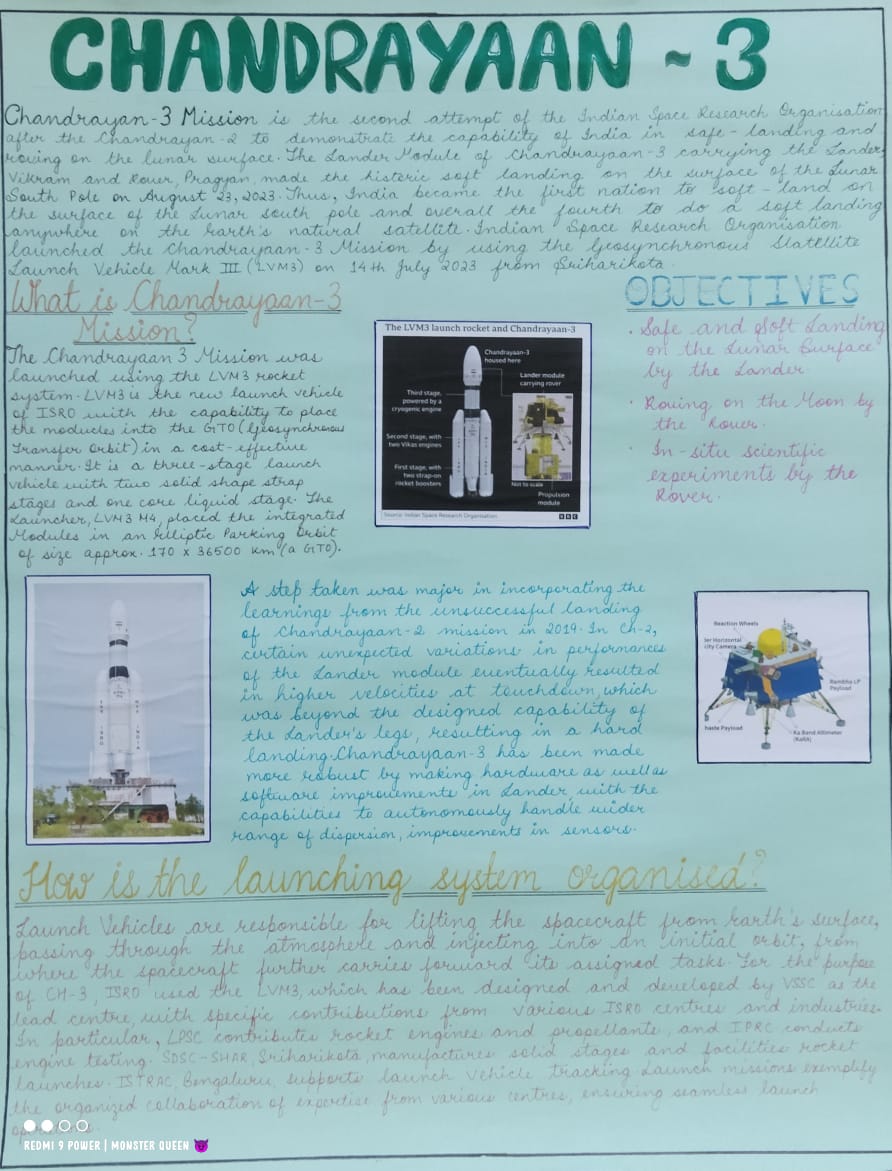 CHANDRAYAAN - 3
Chandrayan-3 Mission is the second attempt of the Indian Space Research Organisation
after the Chandrayan-2 to demonstrate the capability of India in safe-landing and
roving on the lunar surface. The Lander Module of Chandrayaan-3 carrying the Lander,
Vikram and Rover, Pragyan, made the historic soft landing on the surface of the Lunar
South Pole on August 23, 2023. Thus, India became the first nation to soft-land on
the surface of the Lunar south pole and overall the fourth to do a soft landing
anywhere on the Earth's natural satellite. Indian Space Research Organisation
launched the Chandrayaan-3 Mission by using the Geosynchronous Satellite
Launch Vehicle Mark III (LVM3) on 14th July 2023 from Sriharikota.
What is Chandrayaan-3
Mission?
The Chandrayaan 3 Mission was
launched using the LVM3 rocket
system. LVM3 is the new launch vehicle
of ISRO with the capability to place
the modules into the GTO (Geosynchronous
Transfer Orbit) in a cost-effective
manner. It is a three-stage launch
vehicle with two solid shape strap
stages and one core liquid stage. The
Launcher, LVM3 M4, placed the integrated
Modules in an Elliptic Parking Orbit
of size approx. 170 x 36500 km (a GTO).
The LVM3 launch rocket and Chandrayaan-3
Chandrayaan-3
housed here
Lander module
carrying rover
Third stage,
powered by a
cryogenic engine
Second stage, with
two Vikas engines
First stage, with
two strap-on
rocket boosters
Not to scale
Propulsion
module
Source: Indian Space Research Organisation
BBC
OBJECTIVES
• Safe and Soft Landing
on the Lunar Surface
by the Lander.
• Roving on the Moon by
the Rover.
• In-situ scientific
experiments by the
Rover.
A step taken was major in incorporating the
learnings from the unsuccessful landing
of Chandrayaan-2 mission in 2019. In Ch-2,
certain unexpected variations in performances
of the Lander module eventually resulted
in higher velocities at touchdown, which
was beyond the designed capability of
the Lander's legs, resulting in a hard
landing. Chandrayaan-3 has been made
more robust by making hardware as well as
software improvements in Lander with the
capabilities to autonomously handle wider
range of dispersion, improvements in sensors.
Reaction Wheels
der Horizontal
city Camera
Rambha LP
Payload
haste Payload
Ka Band Altimeter
(KaRA)
How is the launching system organised?
Launch Vehicles are responsible for lifting the spacecraft from Earth's surface,
passing through the atmosphere and injecting into an initial orbit, from
where the spacecraft further carries forward its assigned tasks. For the purpose
of CH-3, ISRO used the LVM3, which has been designed and developed by VSSC as the
lead centre, with specific contributions from various ISRO centres and industries.
In particular, LPSC contributes rocket engines and propellants, and IPRC conducts
engine testing. SDSC-SHAR, Sriharikota, manufactures solid stages and facilities rocket
launches. ISTRAC, Bengaluru, supports launch vehicle tracking. Launch missions exemplify
the organized collaboration of expertise from various centres, ensuring seamless launch
REDMI 9 POWER | MONSTER QUEEN 😈